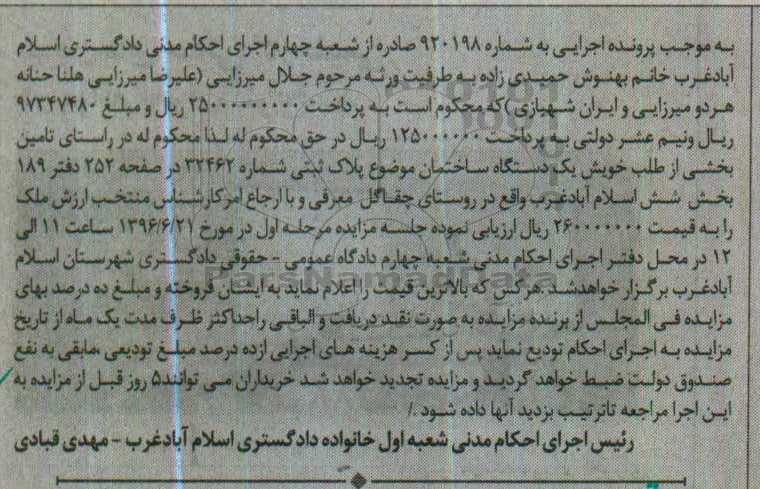 به موجب پرونده اجرایی به شماره ۹۲۰۱۹۸ صادره از شعبه چهارم اجرای احکام مدنی دادگستری اسلام
آبادغرب خانم بهنوش حمیدی زاده به طرفیت ورثه مرحوم جلال میرزایی (علیرضا میرزایی هلنا حنانه
هر دو میرزایی و ایران شهبازی )که محکوم است به پرداخت ۲۵۰۰۰۰۰۰۰۰ ریال و مبلغ ۹۷۳۴۷۴۸۰
ریال ونیم عشر دولتی به پرداخت ۱۲۵۰۰۰۰۰۰ ریال در حق محکوم له لذا محکوم له در راستای تامین
بخشی از طلب خویش یک دستگاه ساختمان موضوع پلاک ثبتی شماره ۳۲۴۶۲ در صفحه ۲۵۲ دفتر ۱۸۹
بخش شش اسلام آبادغرب واقع در روستای چقاگل معرفی و با ارجاع امر کارشناس منتخب ارزش ملک
را به قیمت ۲۶۰۰۰۰۰۰۰ ریال ارزیابی نموده جلسه مزایده مرحله اول در مورخ ۱۳۹۶/۶/۲۱ ساعت ۱۱ الی
۱۲ در محل دفتر اجرای احکام مدنی شعبه چهارم دادگاه عمومی - حقوقی دادگستری شهرستان اسلام
آبادغرب برگزار خواهدشد .هر کس که بالاترین قیمت را اعلام نماید به ایشان فروخته و مبلغ ده درصد بهای
مزایده فی المجلس از برنده مزایده به صورت نقد دریافت و الباقی راحداکثر ظرف مدت یک ماه از تاریخ
مزایده به اجرای احکام تودیع نماید پس از کسر هزینه های اجرایی ازده درصد مبلغ تودیعی ،مابقی به نفع
صندوق دولت ضبط خواهد گردید و مزایده تجدید خواهد شد خریداران می توانند۵ روز قبل از مزایده به
این اجرا مراجعه تاترتیب بزدید آنها داده شود ./
رئیس اجرای احکام مدنی شعبه اول خانواده دادگستری اسلام آبادغرب - مهدی قبادی
ParsNamadData